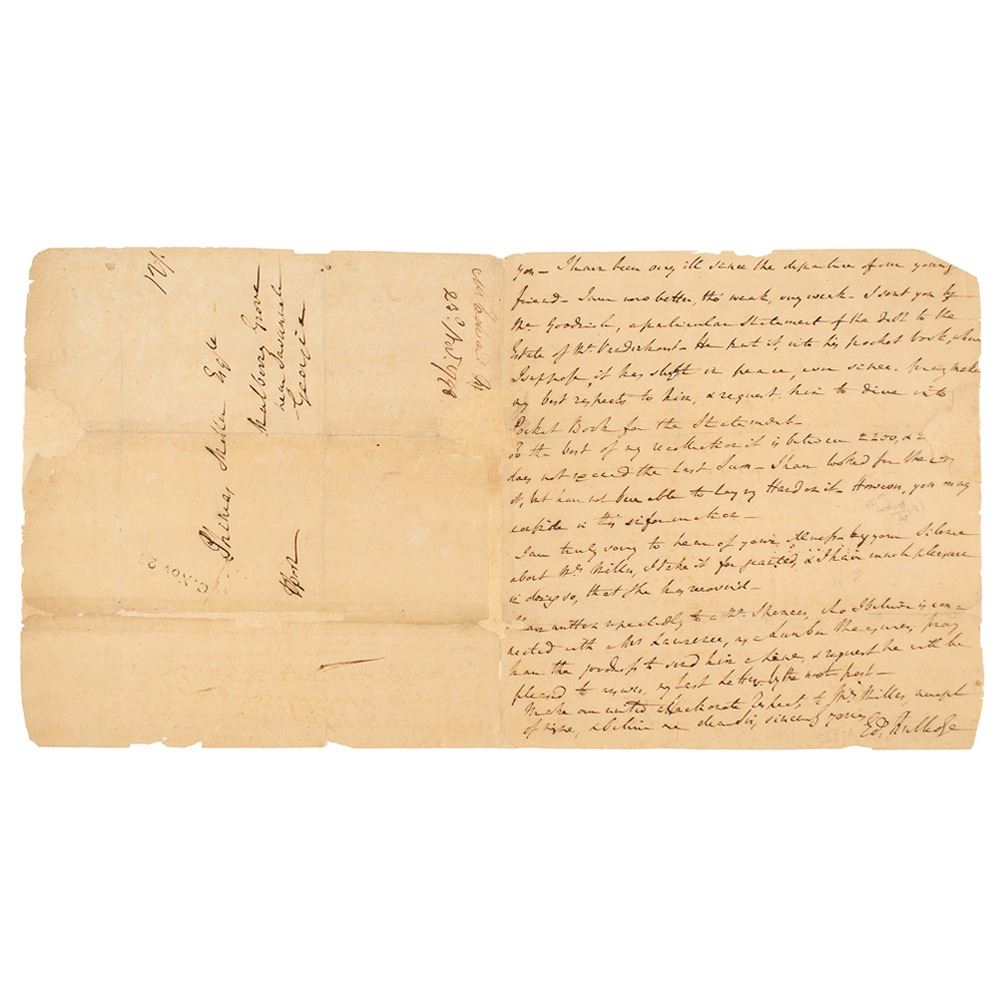 12/.
Phineas Miller Esqr.
Mulberry Grove
near Savannah
Georgia
Post
C. Nov 23
23d. Nov. 1798
you – I have been very ill since the departure of our young
friend – I am now better, tho weak, very weak – I sent you by
Mr. Goodrich, a particular Statement of the debt to the
Estate of Mr. – He put it, into his pocket book, where
I suppose, it has slept in peace, ever since. Pray make
my best respects to him, & request him to dive into
Pocket Book for the Statement –
To the best of my recollection it is between 2200, & 2
does not exceed the last Sum – I have looked for the
it, but have not been able to lay my Hand on it – However, you may
confide in this information –
I am truly sorry to hear of your Illness by your Silence
about Mrs. Miller, I take it for granted, & I have much pleasure
in doing so, that She has recover'd –
I have written repeatedly to a Mr. Spencer, who I believe is con=
nected with a Mr Lawrence, as a Lumber Measurer; pray
have the goodness to send him a line, & request he will be
pleased to answer my last Letter, by the next post –
Make our united affectionate Respects to Mrs. Miller, accept
of mine, & believe me dear Sir, sincerely yours
Ed. Rutledge